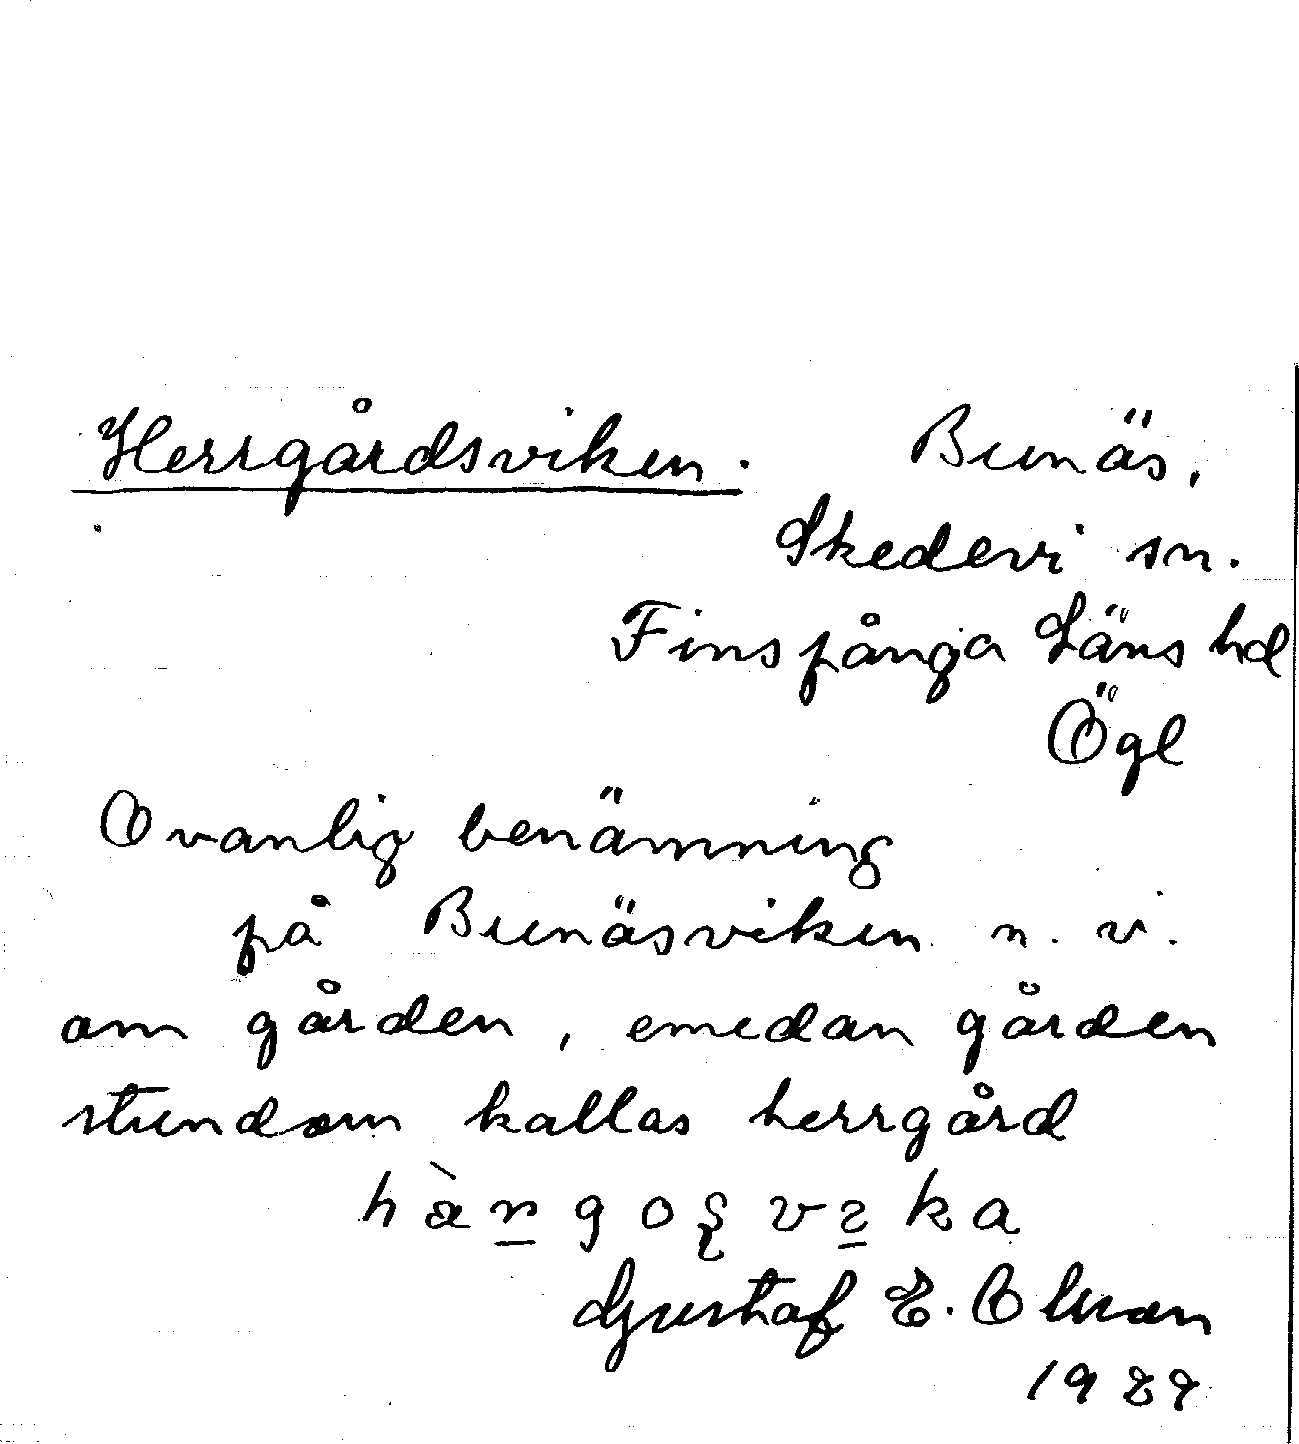 Herrgårdsviken. Bunäs,
Skedevi sn.
Finspånga Läns hd
Ögl
Ovanlig benämning
på Bunäsviken n. v.
om gården, emedan gården
stundom kallas herrgård
Gustaf E. Olsson